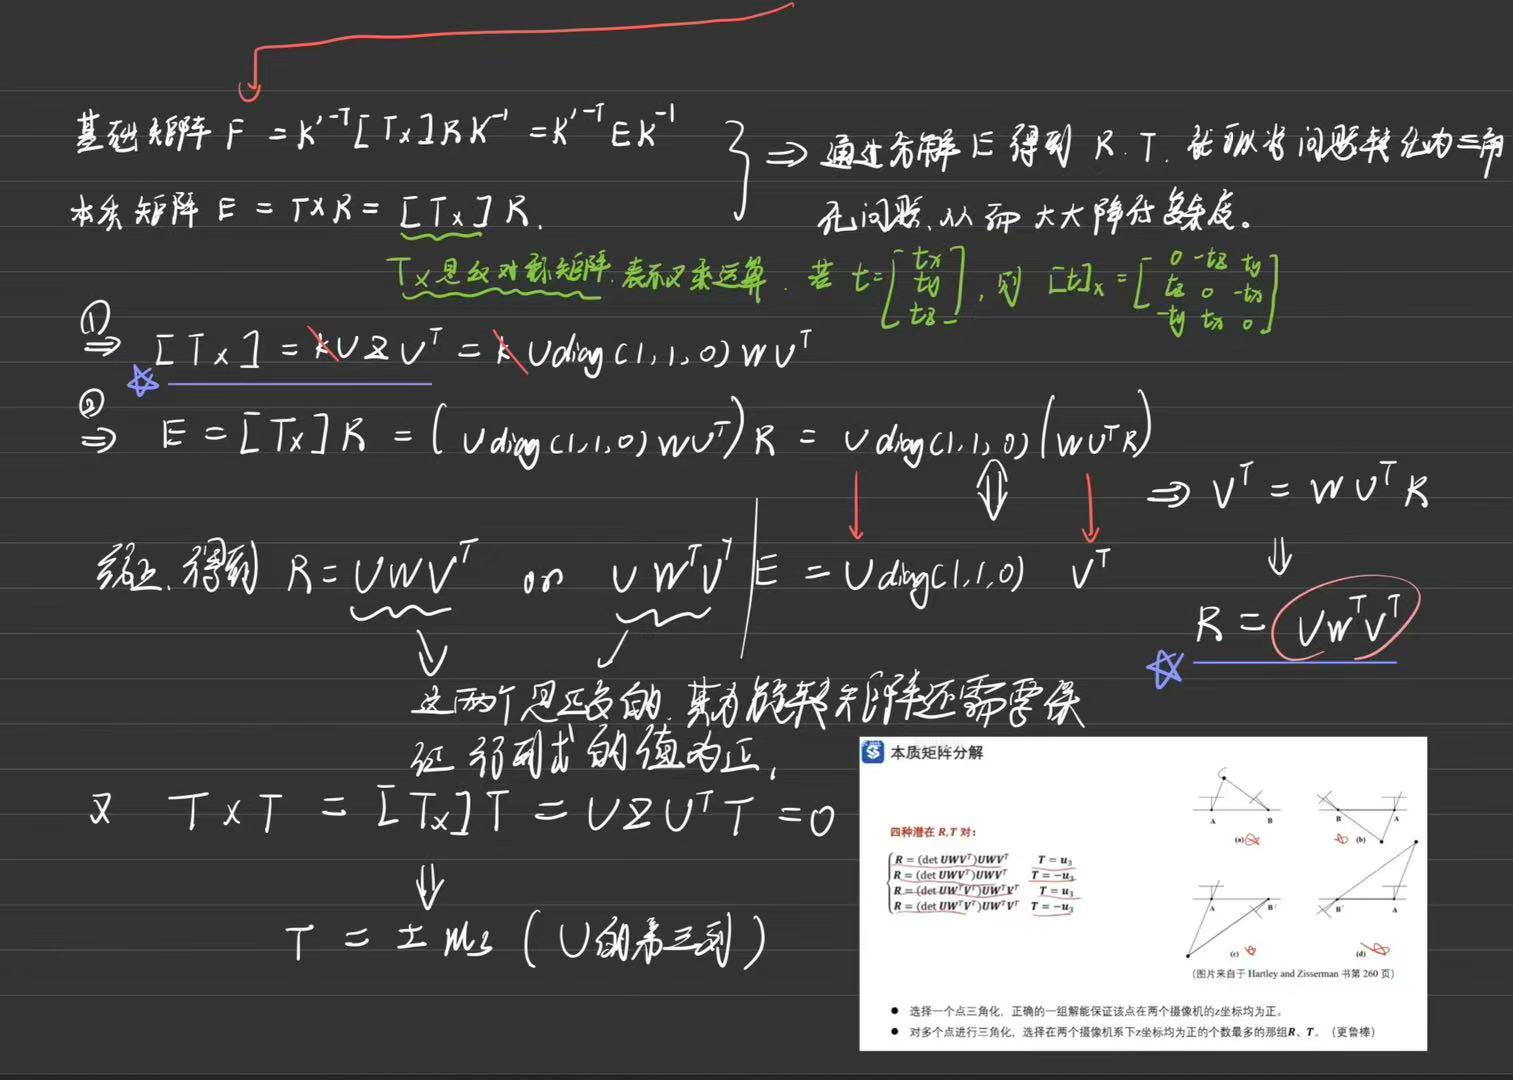 基础矩阵 F = K'⁻ᵀ[Tx]RK⁻¹ = K'⁻ᵀEK⁻¹
本质矩阵 E = T×R = [Tx]R.
⇒ 通过分解 E 得到 R.T. 就可以将问题转化为三角
化问题、从而大大降低复杂度。
Tx是反对称矩阵.表示叉乘运算. 若 t=[tx ty tz], 则 [t]ₓ = [0 -tz ty tz 0 -tx -ty tx 0]
① ⇒ [Tx] = kUZUᵀ = kUdiag(1,1,0)WUᵀ
② ⇒ E = [Tx]R = (Udiag(1,1,0)WUᵀ)R = Udiag(1,1,0)(WUᵀR)
⇒ Vᵀ = WUᵀR
综上.得到 R=UWVᵀ or UWᵀVᵀ
E = Udiag(1,1,0) Vᵀ
R = UWᵀVᵀ
这两个是正交的.其为旋转矩阵还需要保
证行列式的值为正.
又 T×T = [Tx]T = UZUᵀT = 0
T = ±u₃ (U的第三列)
本质矩阵分解
四种潜在 R,T 对：
R = (det UWVᵀ)UWVᵀ T = u₃
R = (det UWVᵀ)UWVᵀ T = −u₃
R = (det UWᵀVᵀ)UWᵀVᵀ T = u₃
R = (det UWᵀVᵀ)UWᵀVᵀ T = −u₃
A B
(a)
B A
(b)
A B'
(c)
B' A
(d)
(图片来自于 Hartley and Zisserman 书第 260 页)
● 选择一个点三角化，正确的一组解能保证该点在两个摄像机的z坐标均为正。
● 对多个点进行三角化，选择在两个摄像机系下z坐标均为正的个数最多的那组R、T。（更鲁棒）